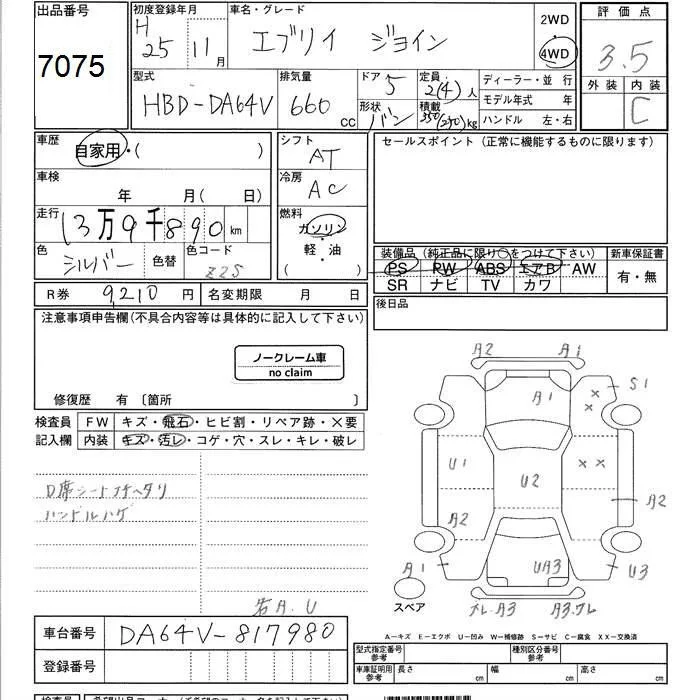 出品番号
7075
初度登録年月
H
25年 11月
車名・グレード
エブリイ ジョイン
2WD
4WD
評価点
3.5
外装 内装
C
型式
HBD-DA64V
排気量
660 cc
ドア
5
形状
バン
定員
2(4)人
積載
350(250)kg
ディーラー・並行
モデル年式 年
ハンドル 左・右
車歴
自家用・( )
車検
年 月(日)
走行
13万9千890km
色
シルバー
色替
色コード
Z2S
シフト
AT
冷房
AC
燃料
ガソリン
・
軽・油
( )
セールスポイント(正常に機能するものに限ります)
装備品(純正品に限り○をつけて下さい)
PS PW ABS エアB AW
SR ナビ TV カワ
新車保証書
有・無
R券 9,210円
名変期限 月 日
後日品
注意事項申告欄(不具合内容等は具体的に記入して下さい)
ノークレーム車
no claim
修復歴 有〔箇所 〕
検査員
記入欄
FW キズ・飛石・ヒビ割・リペア跡・×要
内装 キズ・汚レ・コゲ・穴・スレ・キレ・破レ
D席シートフチヘタリ
ハンドルハゲ
A2 A1
A1
× S1
×
U1
××
U2
A2
A2
A1
UA3
U3
スペア
A3
A3.
A.U
A-キズ E-エクボ U-凹み W-補修跡 S-サビ C-腐食 XX-交換済
車台番号
DA64V-817980
登録番号
型式指定番号
参考
種別区分番号
参考
車庫証明用
参考
長さ cm
幅 cm
高さ cm